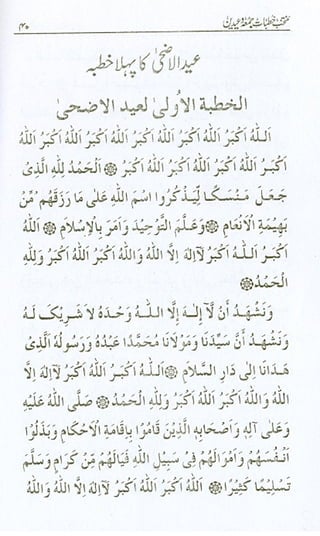 منتخب خطبات جمعہ و عیدین
۴۰
عید الاضحیٰ کا پہلا خطبہ
الخطبة الأولىٰ لعيد الاضحىٰ
اَللهُ اَكْبَرُ اَللهُ اَكْبَرُ اَللهُ اَكْبَرُ اَللهُ اَكْبَرُ اَللهُ اَكْبَرُ اَللهُ
اَكْبَرُ اَللهُ اَكْبَرُ اَللهُ اَكْبَرُ اَللهُ اَكْبَرُ ۞ اَلْحَمْدُ لِلّٰهِ الَّذِىْ
جَعَلَ مَنْسَكًا لِّيَذْكُرُوا اسْمَ اللهِ عَلٰى مَا رَزَقَهُمْ مِّنْ
بَهِيْمَةِ الْاَنْعَامِ ۞ وَعَلَّمَ التَّوْحِيْدَ وَاَمَرَ بِالْاِسْلَامِ ۞ اَللهُ
اَكْبَرُ اَللهُ اَكْبَرُ لَآاِلٰهَ اِلَّا اللهُ وَاللهُ اَكْبَرُ اَللهُ اَكْبَرُ وَلِلّٰهِ
الْحَمْدُ ۞
وَنَشْهَدُ اَنْ لَّآ اِلٰهَ اِلَّا اللهُ وَحْدَهُ لَا شَرِيْكَ لَهُ
وَنَشْهَدُ اَنَّ سَيِّدَنَا وَمَوْلَانَا مُحَمَّدًا عَبْدُهُ وَرَسُوْلُهُ الَّذِىْ
هَدَانَا اِلٰى دَارِ السَّلَامِ ۞ اَللهُ اَكْبَرُ اَللهُ اَكْبَرُ لَآاِلٰهَ اِلَّا
اللهُ وَاللهُ اَكْبَرُ اَللهُ اَكْبَرُ وَلِلّٰهِ الْحَمْدُ ۞ صَلَّى اللهُ عَلَيْهِ
وَعَلٰى اٰلِهِ وَاَصْحَابِهِ الَّذِيْنَ قَامُوْا بِاِقَامَةِ الْاَحْكَامِ وَبَذَلُوْا
اَنْفُسَهُمْ وَاَمْوَالَهُمْ فِىْ سَبِيْلِ اللهِ فَيَالَهُمْ مِّنْ كِرَامٍ وَسَلَّمَ
تَسْلِيْمًا كَثِيْرًا ۞ اَللهُ اَكْبَرُ اَللهُ اَكْبَرُ لَآاِلٰهَ اِلَّا اللهُ وَاللهُ